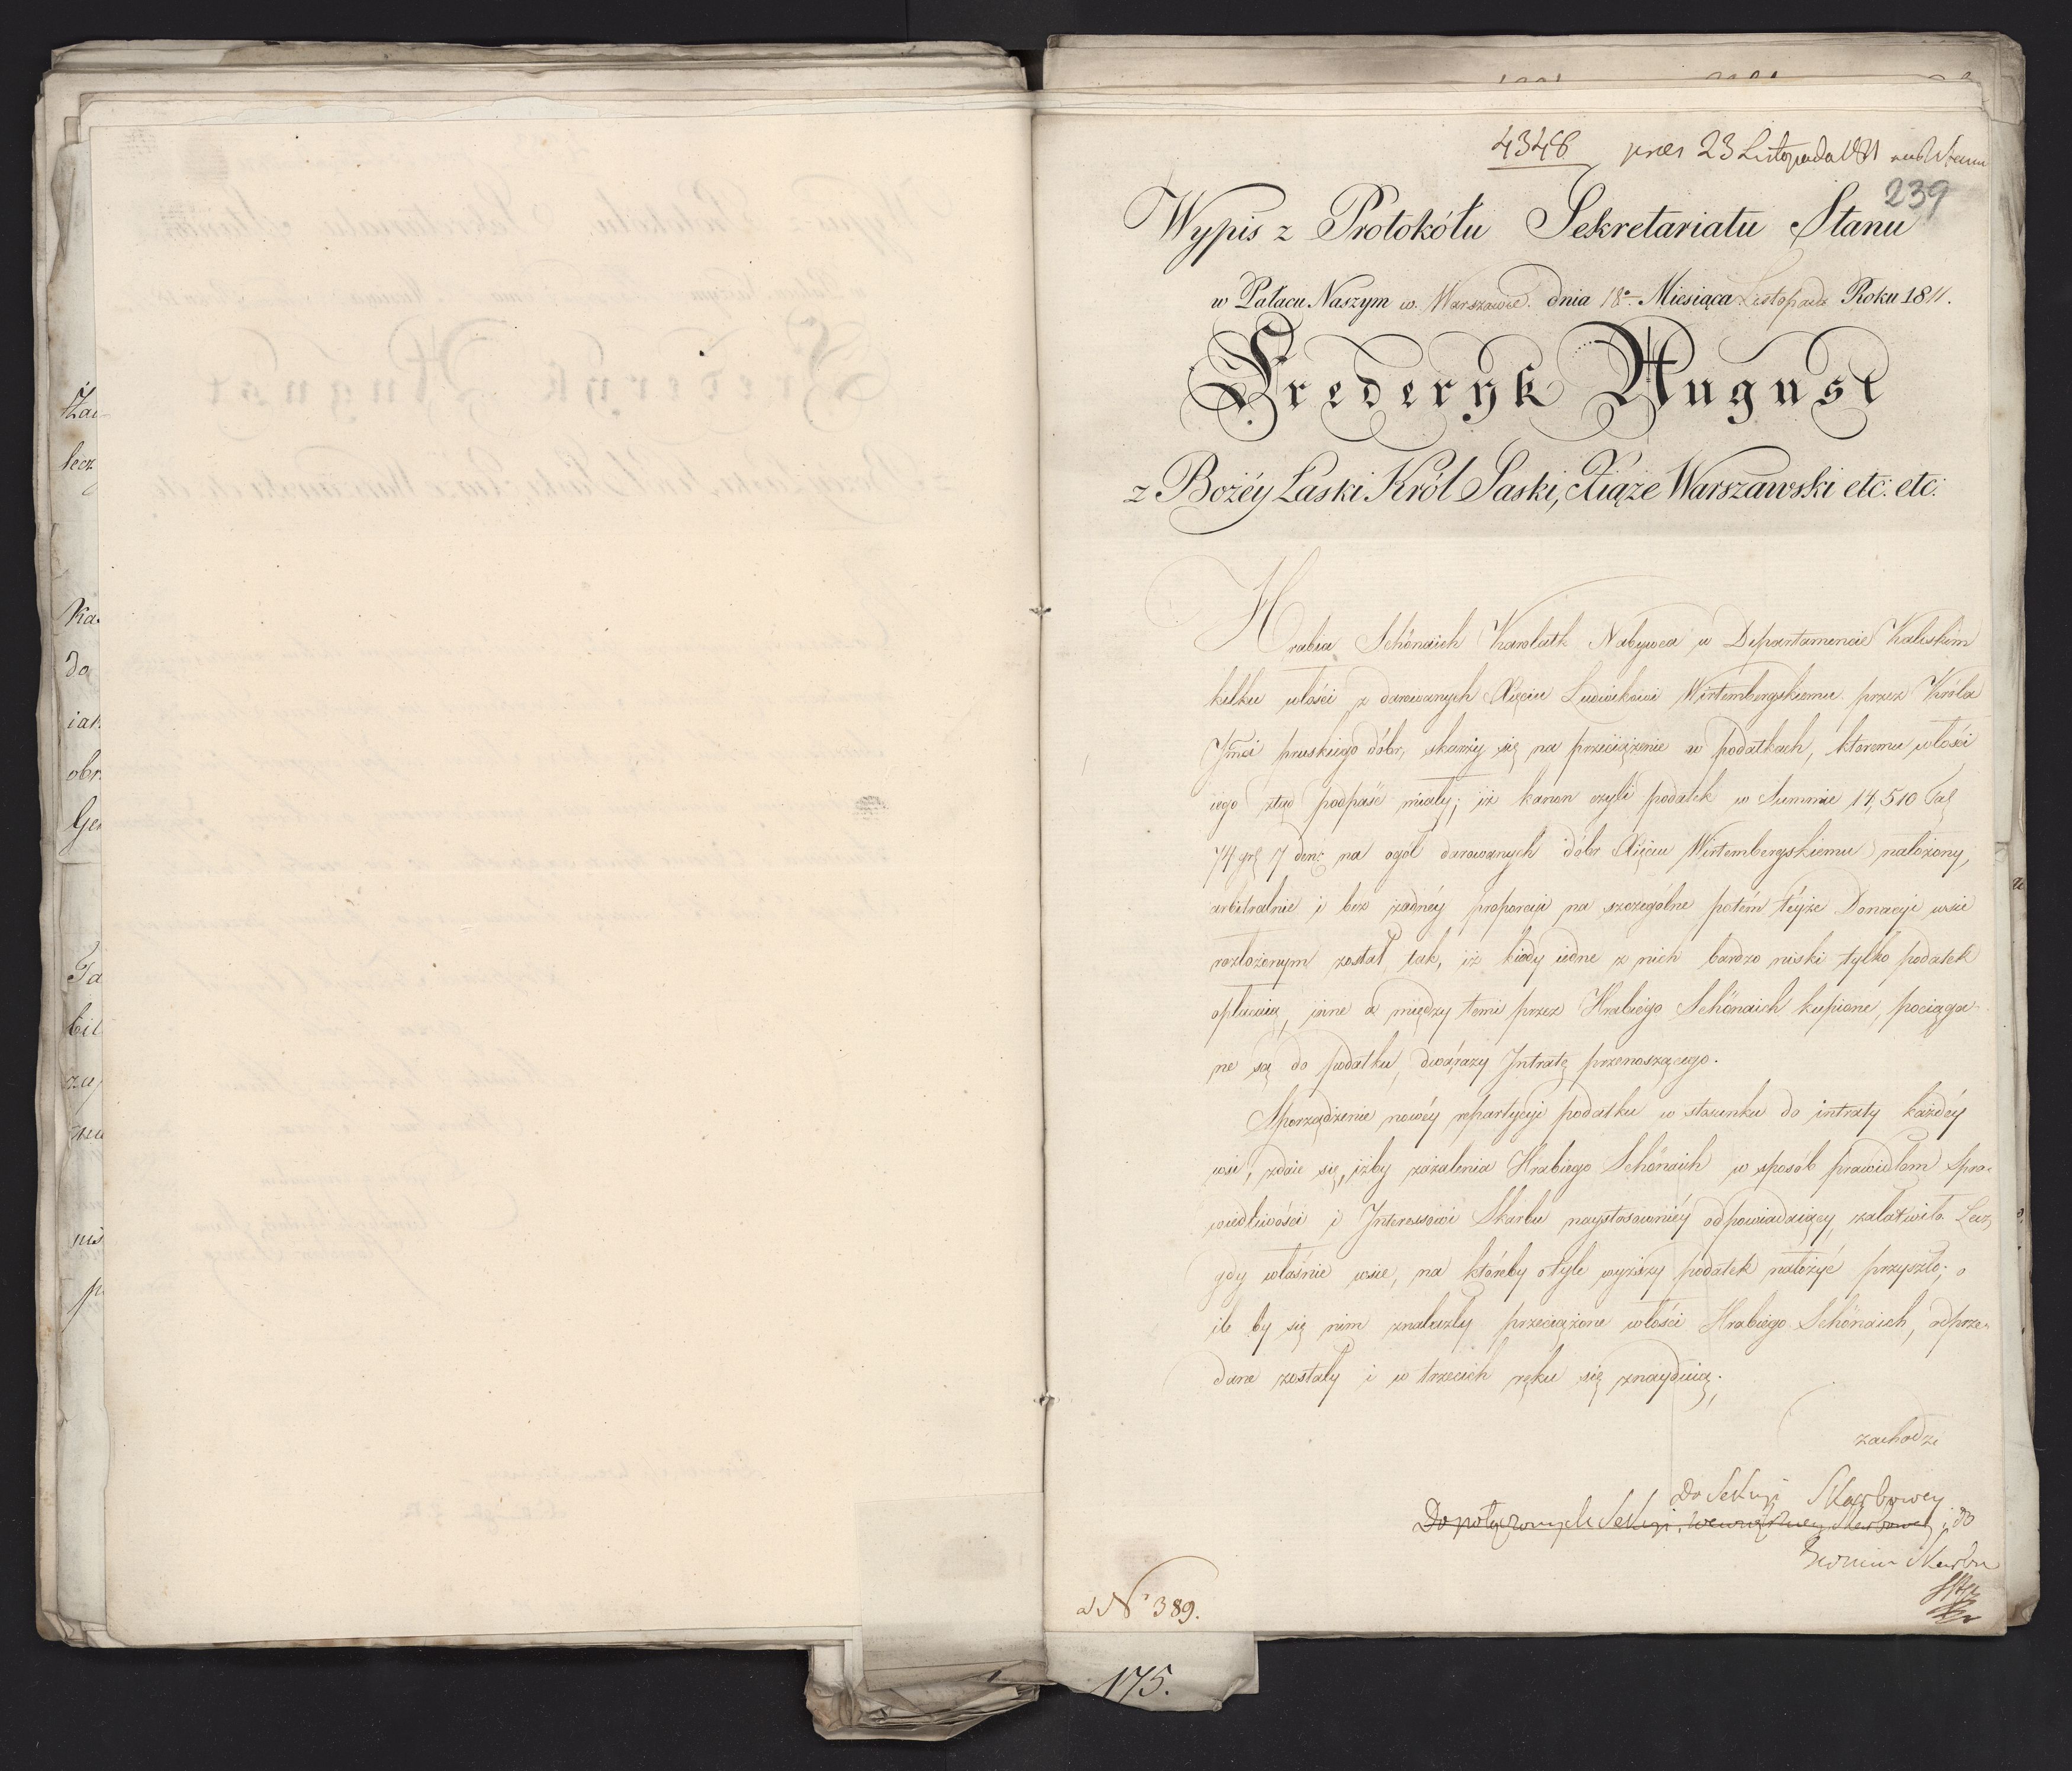 Zac
lecz
Ka
do
iak
obr
Gen
Ta
bil
zu
nis
p
4348 pres 23 Listopada 1811
239
Wypis z Protokółu Sekretariatu Stanu
w Pałacu Naszym w Warszawie dnia 18º Miesiąca Listopada Roku 1811.
Frederyk August
z Bożéy Łaski Król Saski, Xiąże Warszawski etc: etc:
Hrabia Schönaich Karolath Nabywca w Departamencie Kaliskim
kilku włości z darowanych Xięciu Ludwikowi Wirtembergskiemu przez Króla
Jmci pruskiego dóbr, skarży się na przeciążenie w podatkach, któremu włości
iego ztąd podpaść miały; iż kanon czyli podatek w Summie 14,510 Tal
74 gr 7 den: na ogół darowanych dóbr Xięciu Wirtembergskiemu nałożony,
arbitralnie i bez żadnéy proporcyi na szczególne potém téyże Donacyi wsie
rozłożonym został tak, iż kiedy iedne z nich bardzo niski tylko podatek
opłacaią, inne a między temi przez Hrabiego Schönaich kupione, pociąga-
ne są do podatku, dwarazy Intratę przenoszącego.
Sporządzenie nowéy repartycyi podatku w stosunku do intraty każdéy
wsi, zdaie się, iżby zażalenia Hrabiego Schönaich w sposób prawidłom Spra-
wiedliwości i Interessowi Skarbu naystosowniéy odpowiadaiący, załatwiło. Lecz
gdy właśnie wsie, na któreby otyle wyższy podatek nałożyć przyszło, o
ile by się nim znalazły przeciążone włości Hrabiego Schönaich, odprze-
dane zostały i w trzecich ręku się znayduią;
zachodzi
Do Sekcyi Skarbowey
Do połączonych Sekcyi Wewnętrzney Skarbowey i do
Skarbu
ad Nº 389.
175.